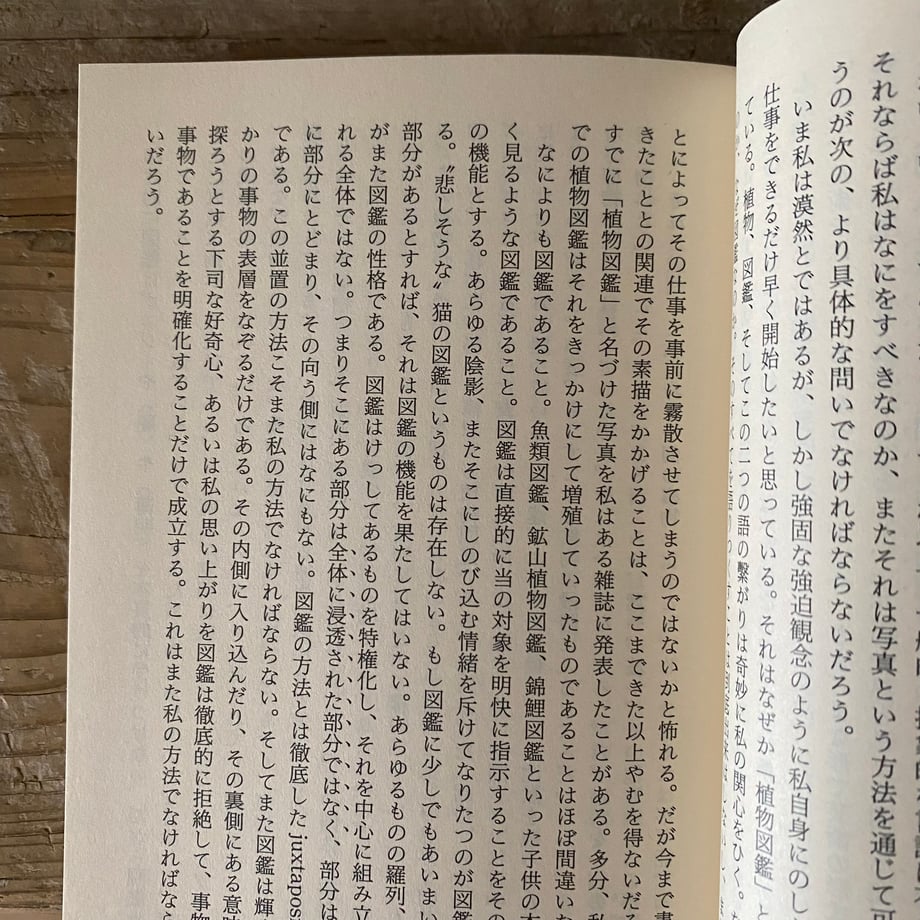 それならば私はなにをすべきなのか、またそれは写真という方法を通じて可
うのが次の、より具体的な問いでなければならないだろう。
いま私は漠然とではあるが、しかし強固な強迫観念のように私自身にのし
仕事をできるだけ早く開始したいと思っている。それはなぜか「植物図鑑」と
ている。植物、図鑑、そしてこの二つの語の繋がりは奇妙に私の関心をひく。
とによってその仕事を事前に霧散させてしまうのではないかと怖れる。だが今まで書
きたこととの関連でその素描をかかげることは、ここまできた以上やむを得ないだろ
すでに「植物図鑑」と名づけた写真を私はある雑誌に発表したことがある。多分、私
での植物図鑑はそれをきっかけにして増殖していったものであることはほぼ間違いな
なによりも図鑑であること。魚類図鑑、鉱山植物図鑑、錦鯉図鑑といった子供の本
く見るような図鑑であること。図鑑は直接的に当の対象を明快に指示することをその
の機能とする。あらゆる陰影、またそこにしのび込む情緒を斥けてなりたつのが図鑑
る。〝悲しそうな〟猫の図鑑というものは存在しない。もし図鑑に少しでもあいまい
部分があるとすれば、それは図鑑の機能を果たしてはいない。あらゆるものの羅列、
がまた図鑑の性格である。図鑑はけっしてあるものを特権化し、それを中心に組み立
れる全体ではない。つまりそこにある部分は全体に浸透された部分ではなく、部分は
に部分にとどまり、その向う側にはなにもない。図鑑の方法とは徹底した juxtapos
である。この並置の方法こそまた私の方法でなければならない。そしてまた図鑑は輝
かりの事物の表層をなぞるだけである。その内側に入り込んだり、その裏側にある意味
探ろうとする下司な好奇心、あるいは私の思い上がりを図鑑は徹底的に拒絶して、事物
事物であることを明確化することだけで成立する。これはまた私の方法でなければなら
いだろう。